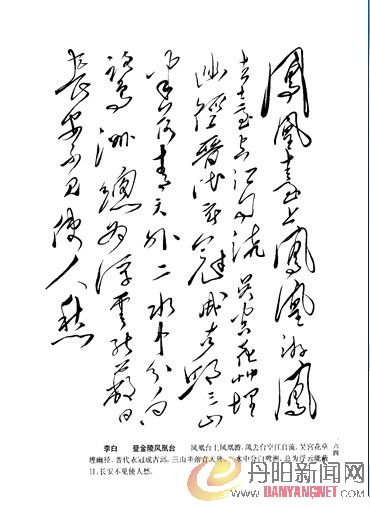 鳳凰臺上鳳凰游鳳
去臺空江自流吳宮花草埋
幽徑晉代衣冠成古邱三山
半落青天外二水中分白
鷺洲總為浮雲能蔽日
長安不見使人愁
六四
李白 登金陵凤凰台 凤凰台上凤凰游,凤去台空江自流。吴宫花草
埋幽径,晋代衣冠成古邱。三山半落青天外,二水中分白鹭洲。总为浮云能蔽
日,长安不见使人愁。
丹阳新闻网